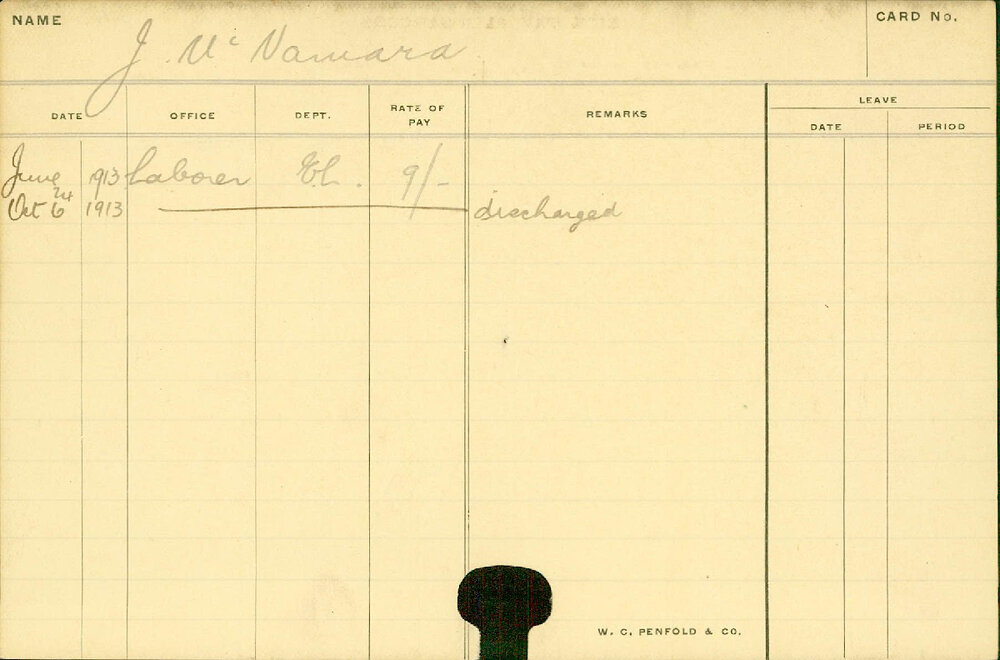 NAME
CARD No.
J. McNamara
DATE OFFICE DEPT. RATE OF PAY REMARKS LEAVE
DATE PERIOD
June 24 1913 Laborer 9/-
Oct 6 1913 discharged
W. C. PENFOLD & CO.